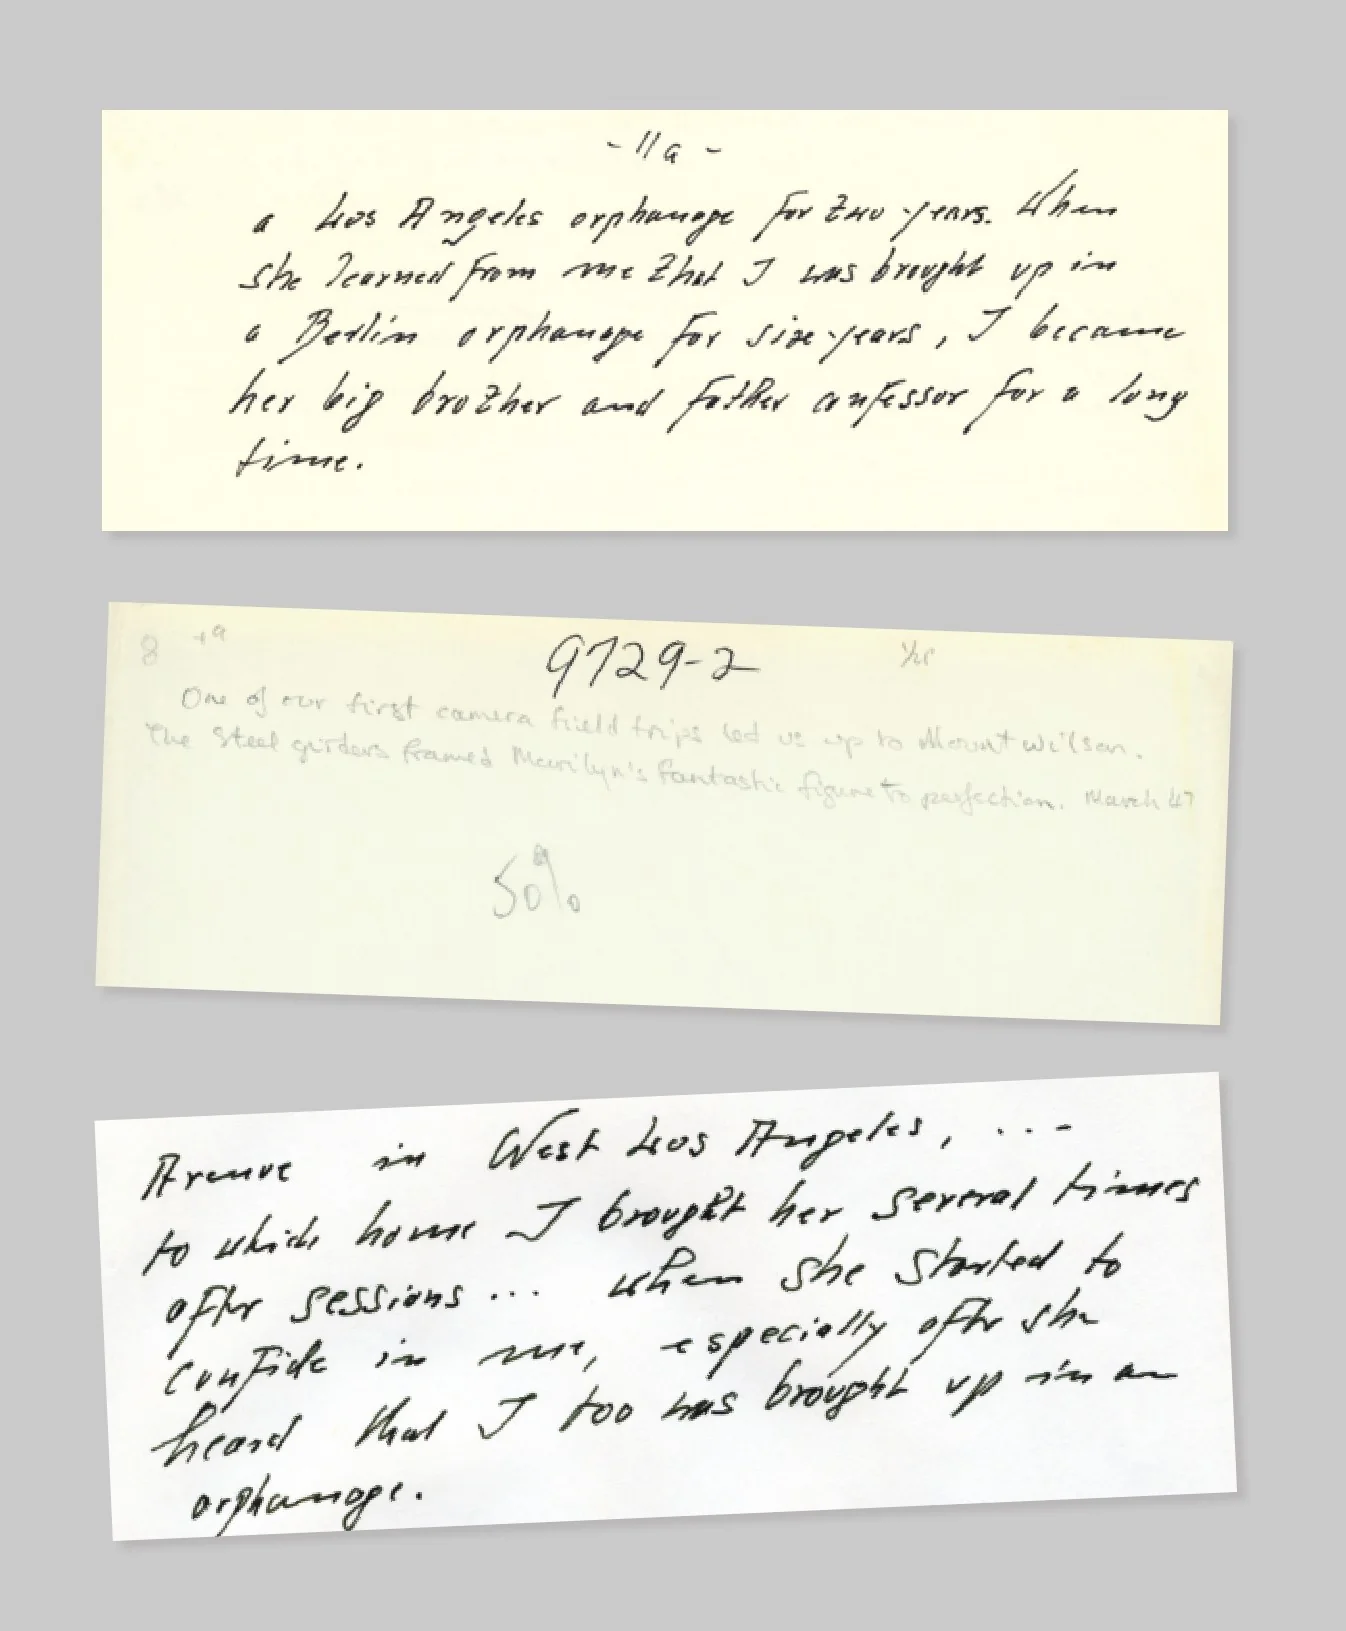 - 11a -
a Los Angeles orphanage for two-years. When
she learned from me that I was brought up in
a Berlin orphanage for six-years, I became
her big brother and father confessor for a long
time.
8 +a 9729-2
One of our first camera field trips led us up to Mount Wilson.
The Steel girders framed Marilyn's fantastic figure to perfection. March 47
50%
Avenue in West Los Angeles, ...-
to which home I brought her several times
after sessions... when she started to
confide in me, especially after she
heard that I too was brought up in an
orphanage.